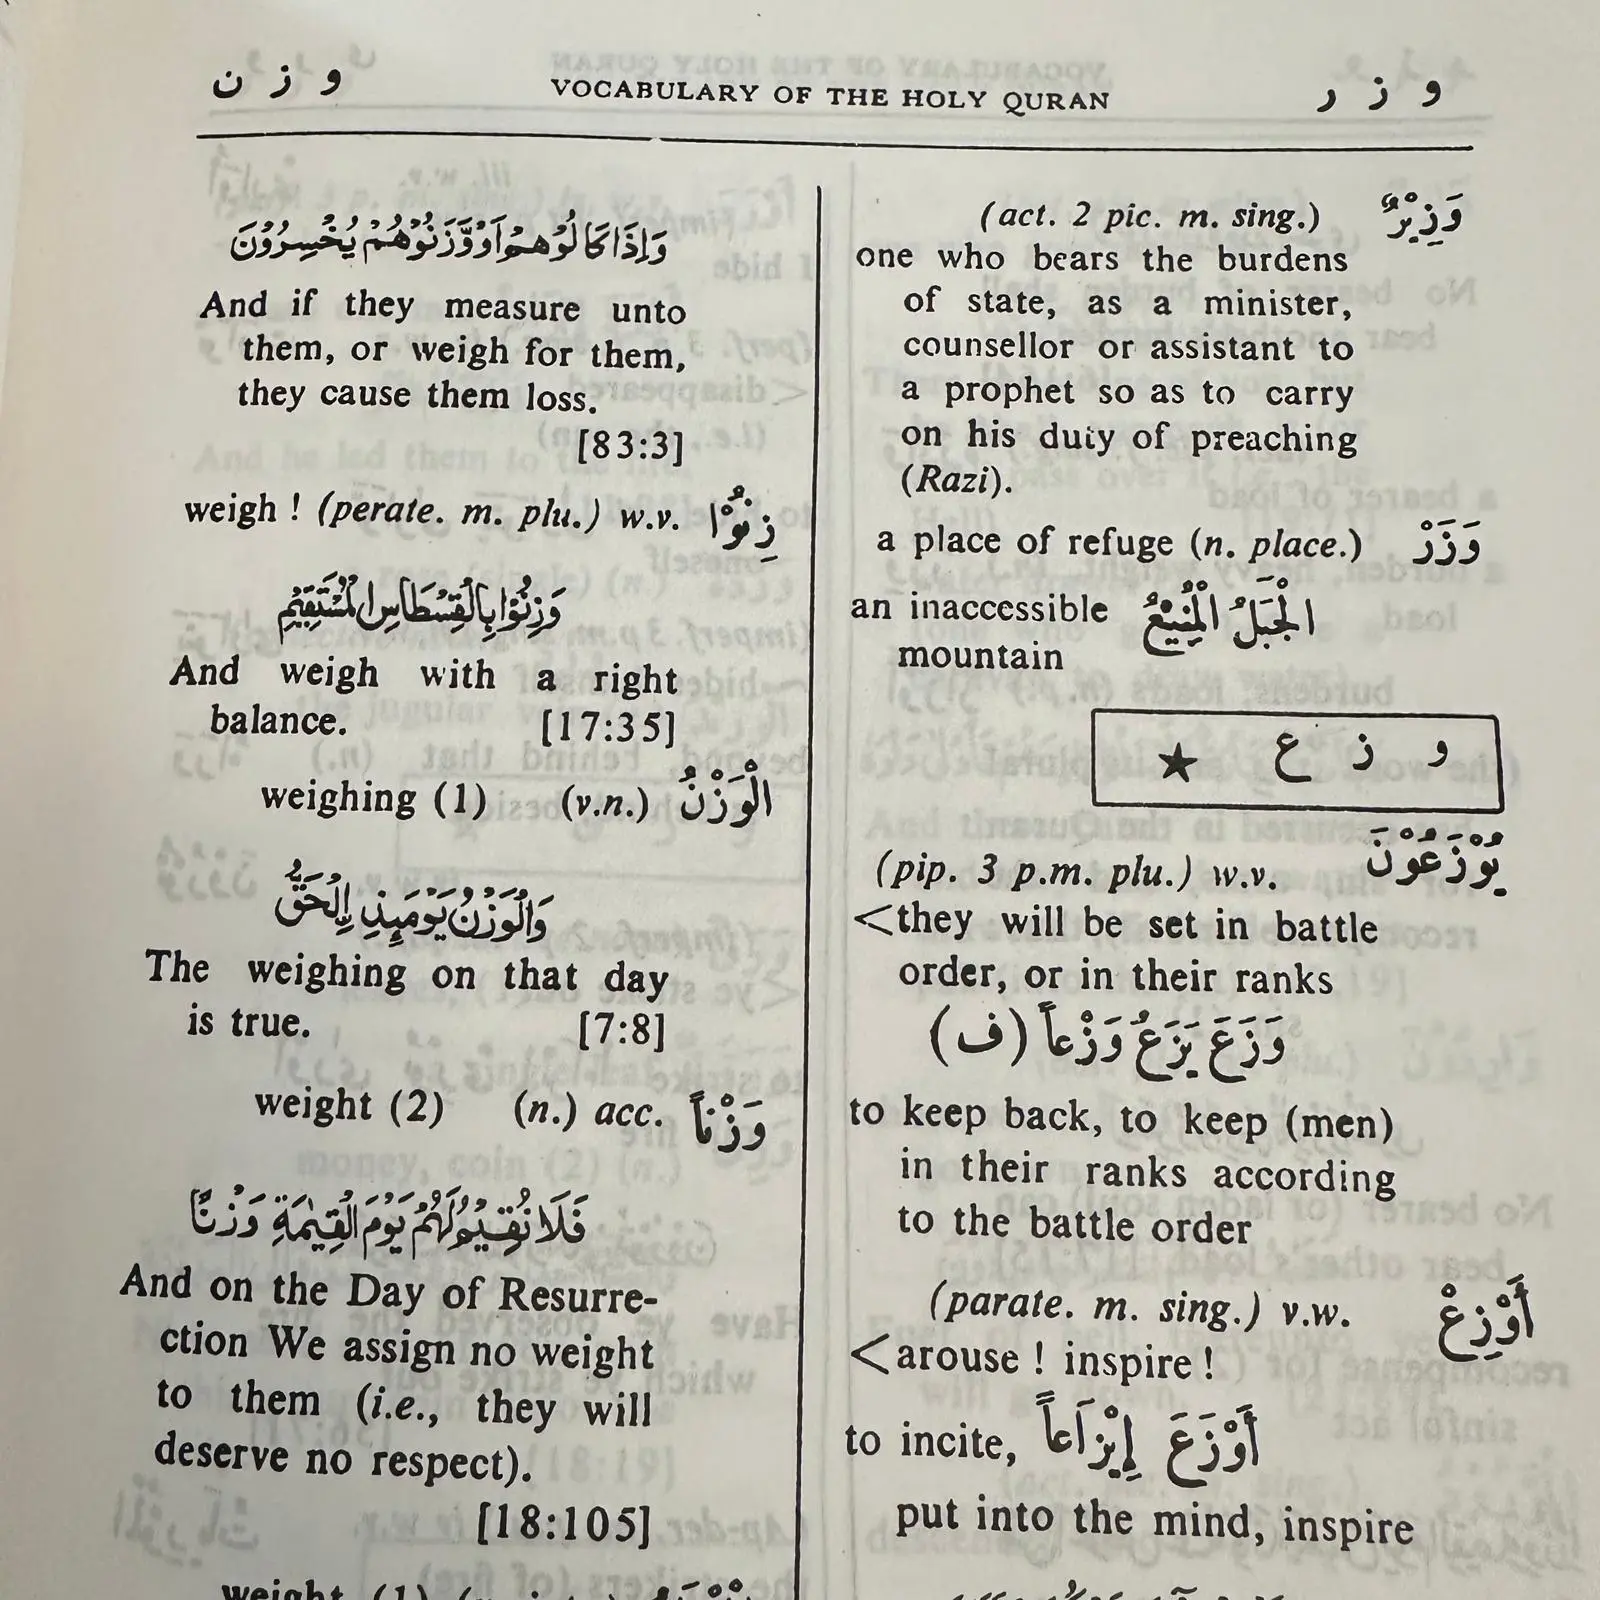 و ز ن
VOCABULARY OF THE HOLY QURAN
و ز ر
(act. 2 pic. m. sing.) وَزِيْرٌ
one who bears the burdens
of state, as a minister,
counsellor or assistant to
a prophet so as to carry
on his duty of preaching
(Razi).
a place of refuge (n. place.) وَزَرْ
an inaccessible الْجَبَلُ الْمَنِيْعُ
mountain
و ز ع ★
يُوْزَعُوْنَ
(pip. 3 p.m. plu.) w.v.
<they will be set in battle
order, or in their ranks
وَزَعَ يَزَعُ وَزْعاً (ف)
to keep back, to keep (men)
in their ranks according
to the battle order
(parate. m. sing.) v.w. أَوْزِعْ
<arouse ! inspire !
to incite, أَوْزَعَ إِيْزَاعاً
put into the mind, inspire
وَاِذَا كَالُوْهُمْ اَوْ وَّزَنُوْهُمْ يُخْسِرُوْنَ
And if they measure unto
them, or weigh for them,
they cause them loss.
[83:3]
weigh ! (perate. m. plu.) w.v. زِنُوْا
وَزِنُوْا بِالْقِسْطَاسِ الْمُسْتَقِيْمِ
And weigh with a right
balance. [17:35]
weighing (1) (v.n.) الْوَزْنُ
وَالْوَزْنُ يَوْمَئِذِ ِۨالْحَقُّ
The weighing on that day
is true. [7:8]
weight (2) (n.) acc. وَزْناً
فَلَا نُقِيْمُ لَهُمْ يَوْمَ الْقِيٰمَةِ وَزْنًا
And on the Day of Resurre-
ction We assign no weight
to them (i.e., they will
deserve no respect).
[18:105]
weight (1)